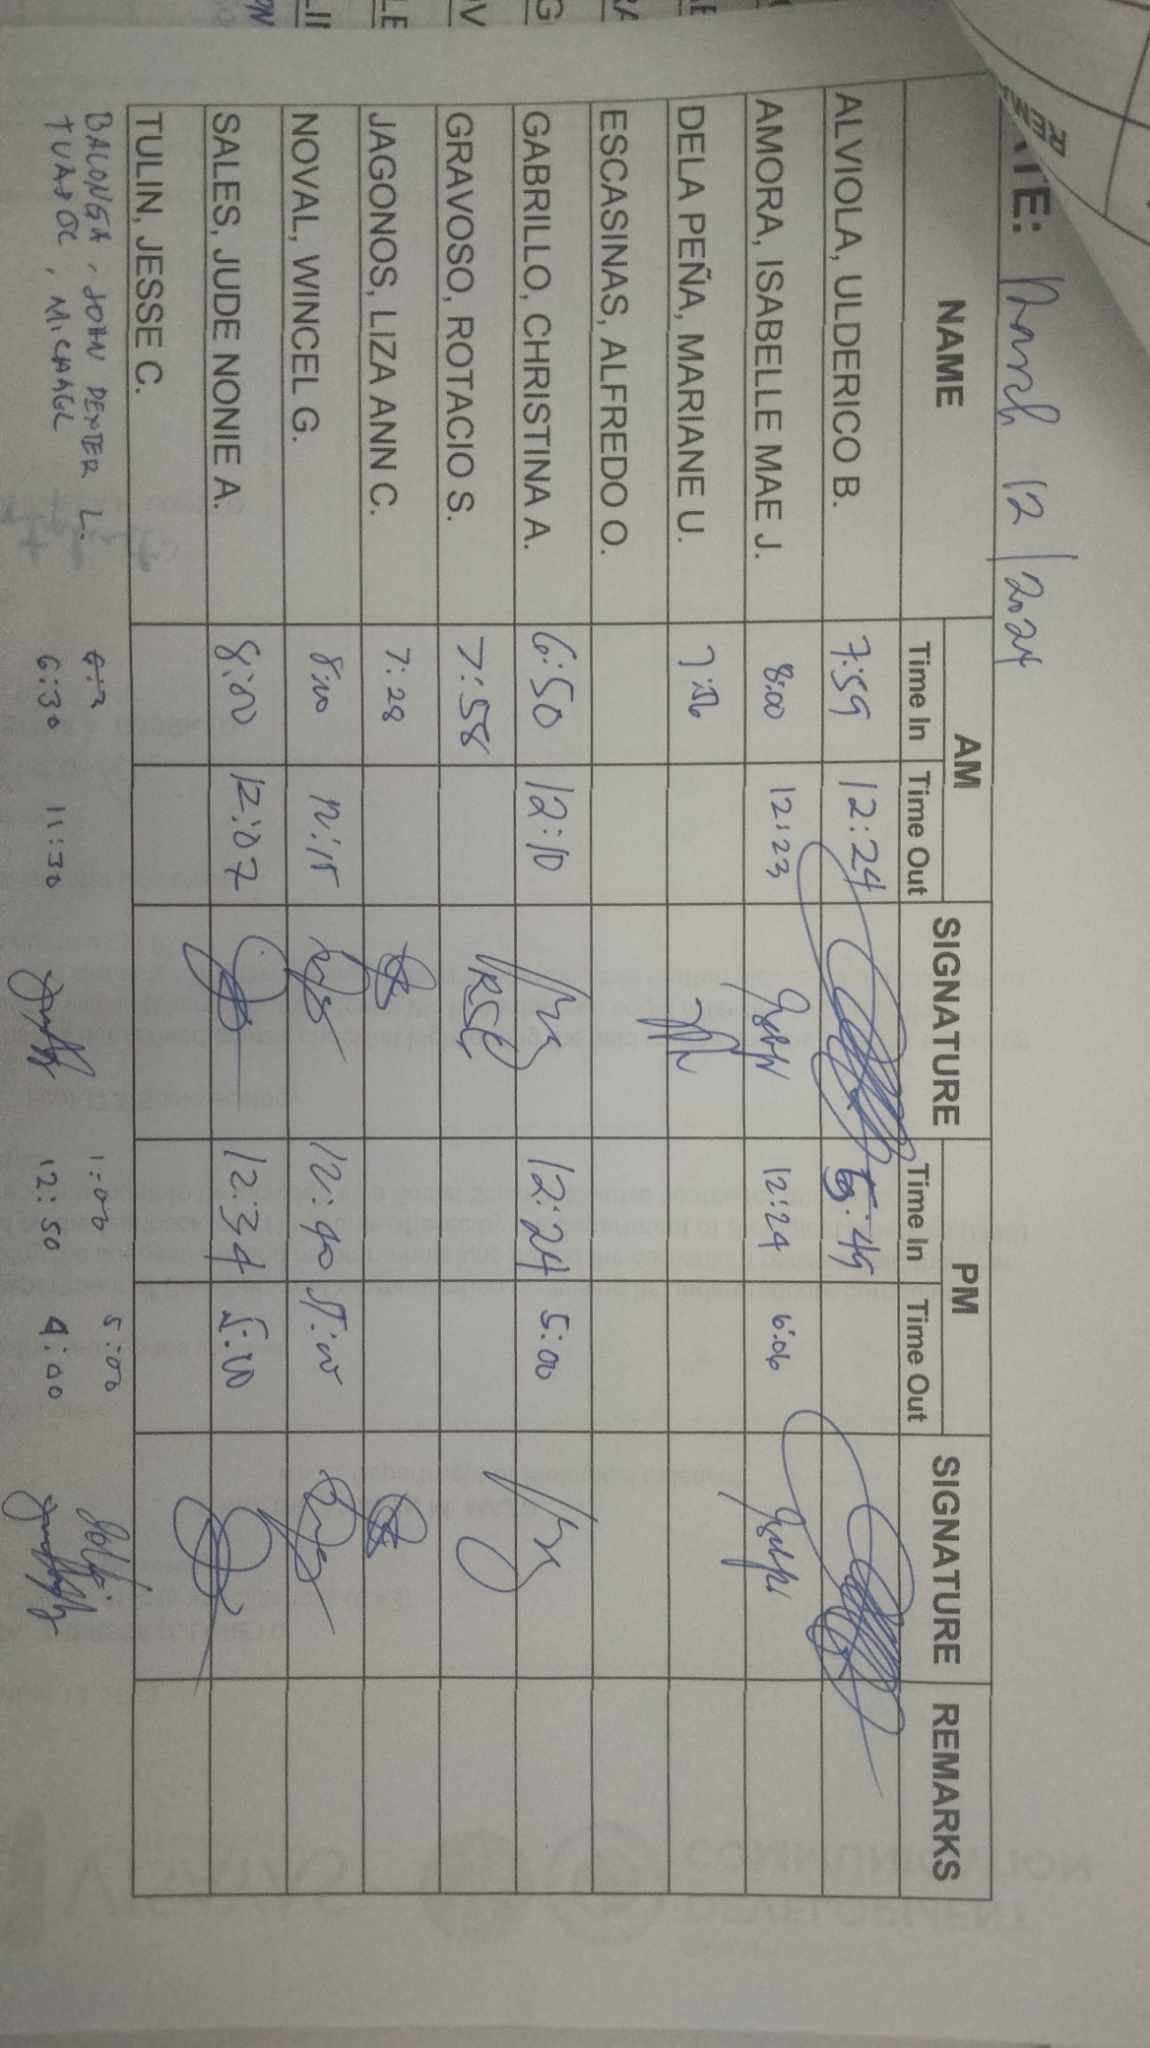 TE: March 12, 2024
NAME AM SIGNATURE PM SIGNATURE REMARKS
Time In Time Out Time In Time Out
ALVIOLA, ULDERICO B. 7:59 12:24 :49
AMORA, ISABELLE MAE J. 8:00 12:23 12:24 6:06
DELA PEÑA, MARIANE U. 7:56
ESCASINAS, ALFREDO O.
GABRILLO, CHRISTINA A. 6:50 12:10 12:24 5:00
GRAVOSO, ROTACIO S. 7:58
JAGONOS, LIZA ANN C. 7:28
NOVAL, WINCEL G. 8:00 12:15 12:40 5:00
SALES, JUDE NONIE A. 8:00 12:07 12:34 5:00
TULIN, JESSE C.
BALONGA, JOHN DEXTER L. 1:00 5:00
TUAJOC, MICHAEL 6:30 11:30 12:50 4:00